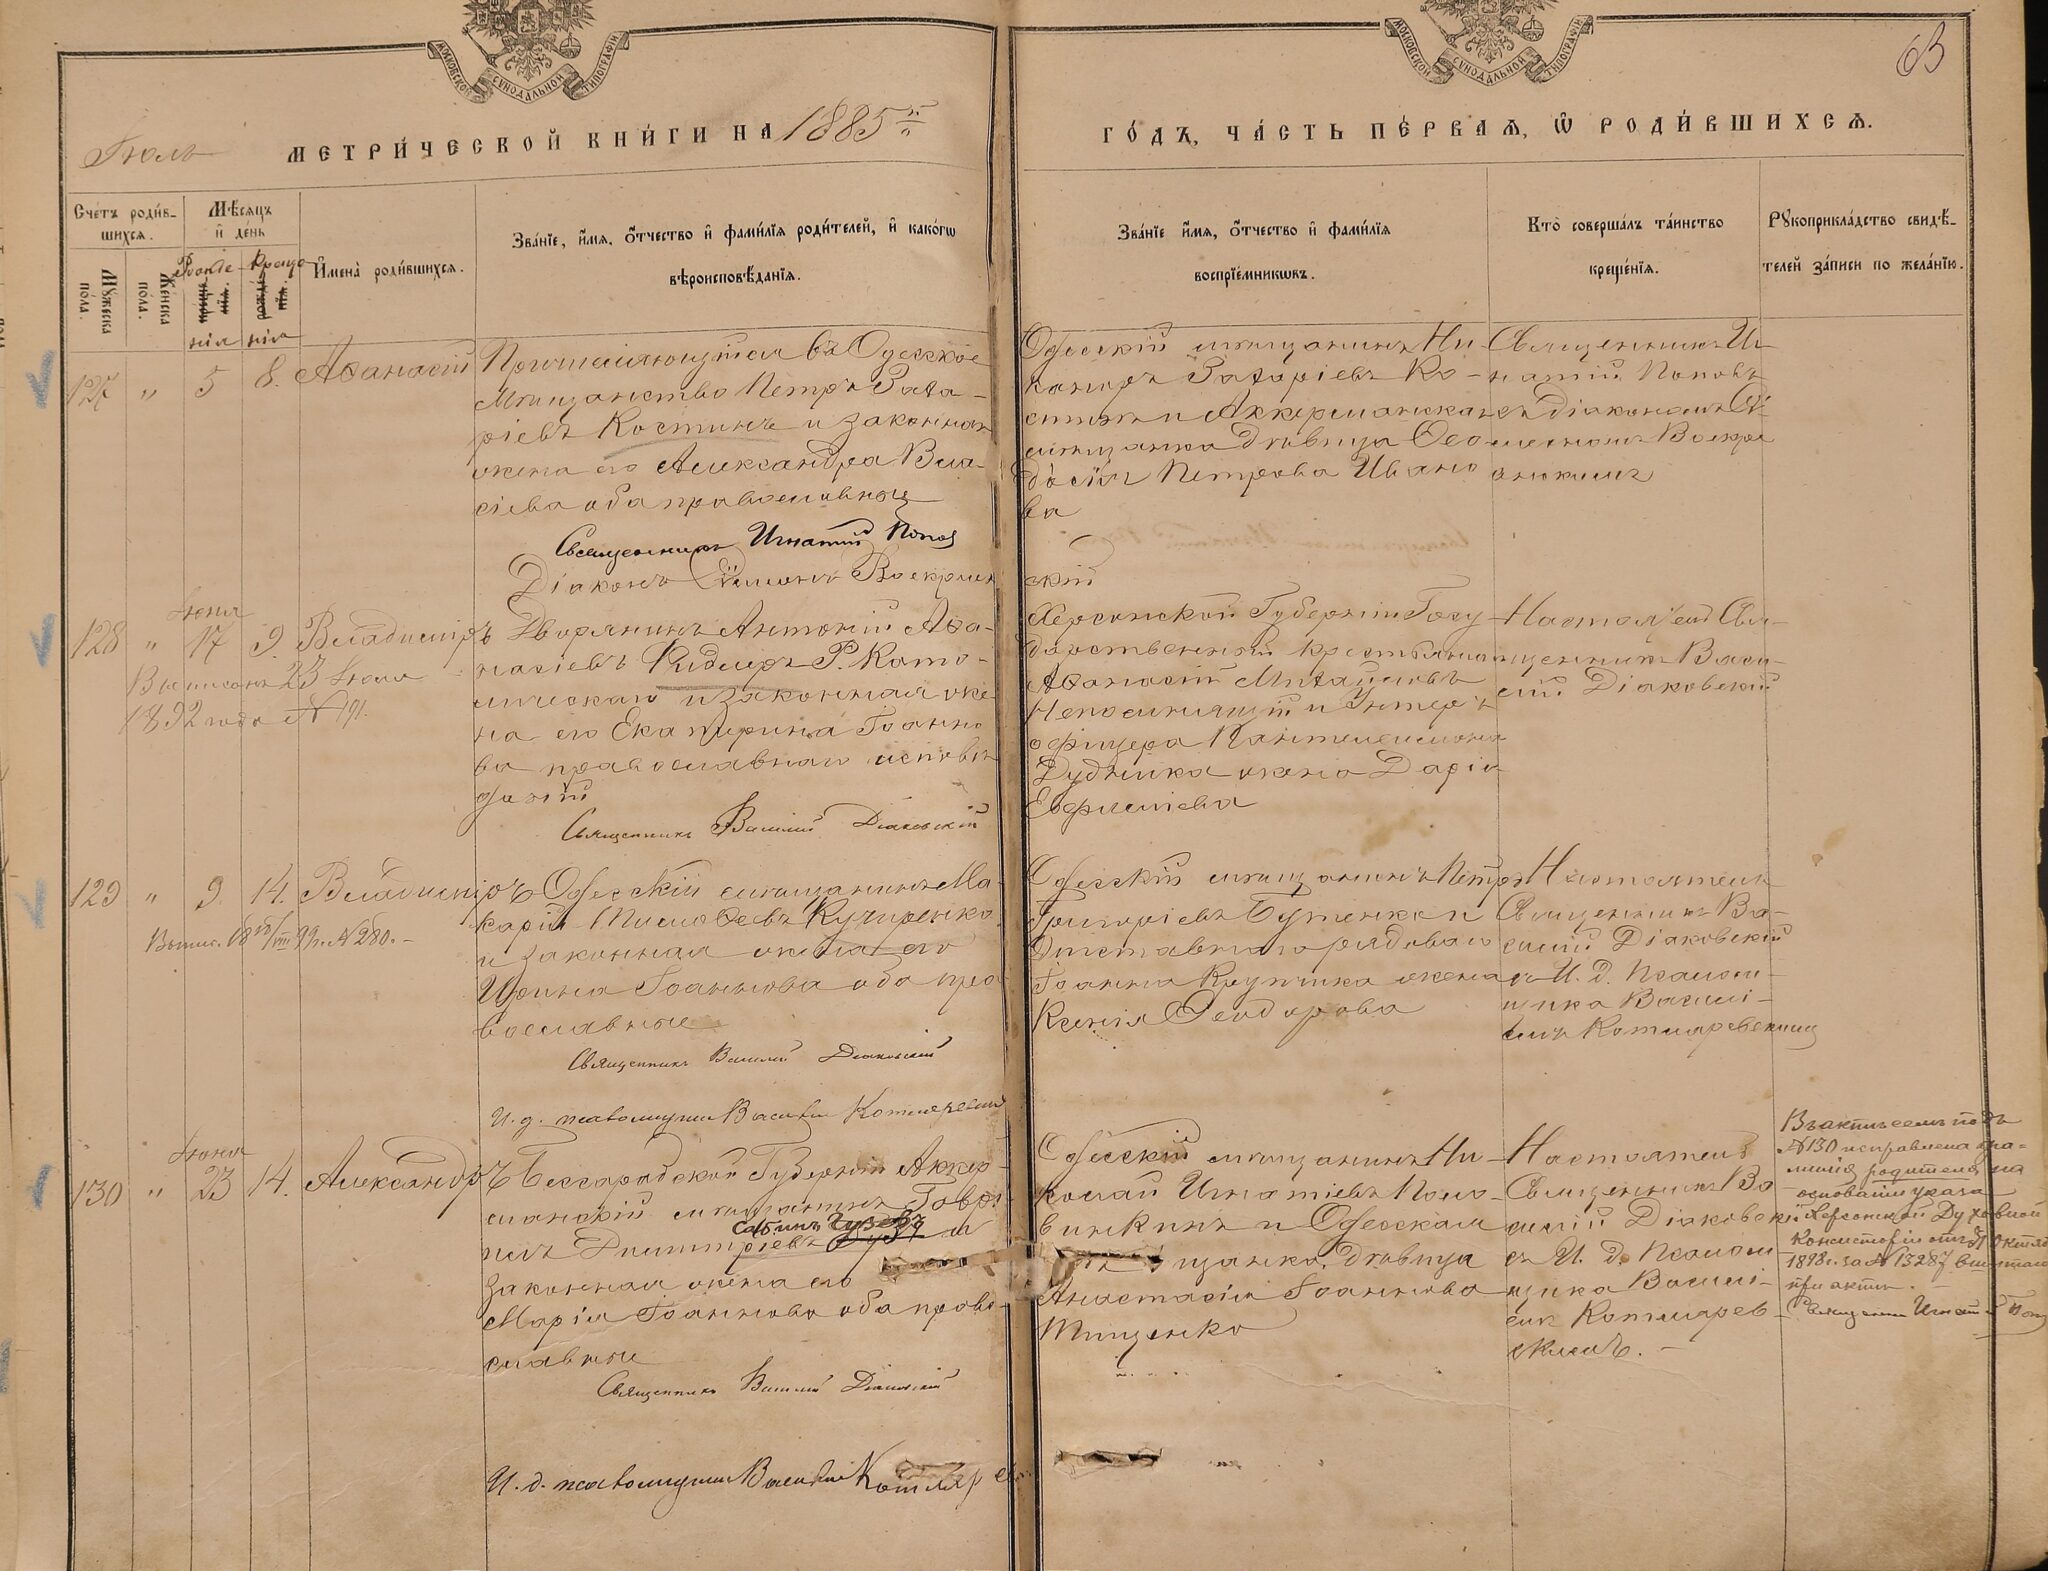 МОСКОВСКОЙ СѴНОДАЛЬНОЙ ТИПОГРАФІИ
МОСКОВСКОЙ СѴНОДАЛЬНОЙ ТИПОГРАФІИ
63
Іюль
МЕТРИ́ЧЕСКОЙ КНИ́ГИ НА 1885й
ГО́ДЪ, ЧА́СТЬ ПЕ́РВАЯ, Ѿ РОДИ́ВШИХСЯ.
Сче́тъ роди́в-
шихся.
Мꙋжеска по́ла.
Же́нска по́ла.
Мѣ́сяцъ и де́нь
Рожде-
нія
Креще-
нія
Имена̀ роди́вшихся.
Зва́нїе, и҆́мя, о҆́тчество и҆ фами́лїя роди́телей, и҆ како́гѡ
вѣроисповѣ́данїя.
Зва́нїе и҆́мя, о҆́тчество и҆ фами́лїя
воспрїе́мникѡвъ.
Кто̀ соверша́лъ та́инство
креще́нїя.
Рꙋкоприкла́дство свидѣ́-
телей за́писи по жела́нїю.
127 " 5 8. Аѳанасій
Причисляющійся въ Одесское
Мѣщанство Петръ Заха-
ріевъ Костинъ и законная
жена его Александра Вла-
сіева оба православные
Священникъ Игнатій Попов
Діаконъ Сѵмеонъ Воскресен
Одесскій мѣщанинъ Ни-
каноръ Захаріевъ Ко-
стинъ и Аккерманская
мѣщанка дѣвица Ѳео-
досія Петрова Ивано
ва
скій
Священникъ Иг-
натій Поповъ
съ діакономъ Сѵ
меономъ Воскре
енскимъ
128 " Іюня 17 9. Владиміръ
Выписанъ 23 Іюля
1892 года № 191.
Дворянинъ Антоній Аѳа-
насіевъ Ридигеръ Р. Като-
лическаго и законная же
на его Екатерина Іоанно
ва православнаго исповѣ
данія
Священникъ Василій Діаковскій
Херсонской Губерніи Госу
дарственный крестьянинъ
Аѳанасій Михайловъ
Непосиляющій и Унтеръ
офицера Пантелеимона
Дудника жена Дарія
Евфиміева
Настоят. Свя-
щенникъ Васи
лій Діаковскій
129 " 9. 14. Владиміръ
№ 280.
Одесскій мѣщанинъ Ма-
карій Тимоѳеевъ Кучеренко
и законная жена его
Ирина Іоаннова оба пра
вославные
Священникъ Василій Діаковскій
И. д. псаломщика Василій Котляревскій
Одесскій мѣщанинъ Петръ
Григоріевъ Бутенко и
Отставнаго рядоваго
Іоанна Крупника жена
Ксенія Ѳеодорова
Настоятель
Священникъ Ва-
силій Діаковскій
съ И. д. Псалом-
щика Василі-
емъ Котляревскимъ
130 " Іюня 23 14. Александръ
Бессарабской Губерніи Аккер-
манскій мѣщанинъ Гаврі
илъ Димитріевъ и
законная жена его
Марія Іоаннова оба право-
славные
Священникъ Василій Діаковскій
И. д. псаломщика Василій Котляре
Одесскій мѣщанинъ Ни-
колай Игнатіевъ Поло-
винкинъ и Одесская
щанка дѣвица
Анастасія Іоаннова
Тищенко
Настоятель
Священникъ Ва
силій Діаковскій
съ И. д. Псалом
щика Василі-
емъ Котлярев-
скимъ.
Въ актѣ семъ подъ
№130 исправлена фа-
милія родителя на
основаніи указа
Херсонской Духовной
Консисторіи отъ Октяб
1898 г. за № 13287
при актѣ.
Священни Игнатій Поп